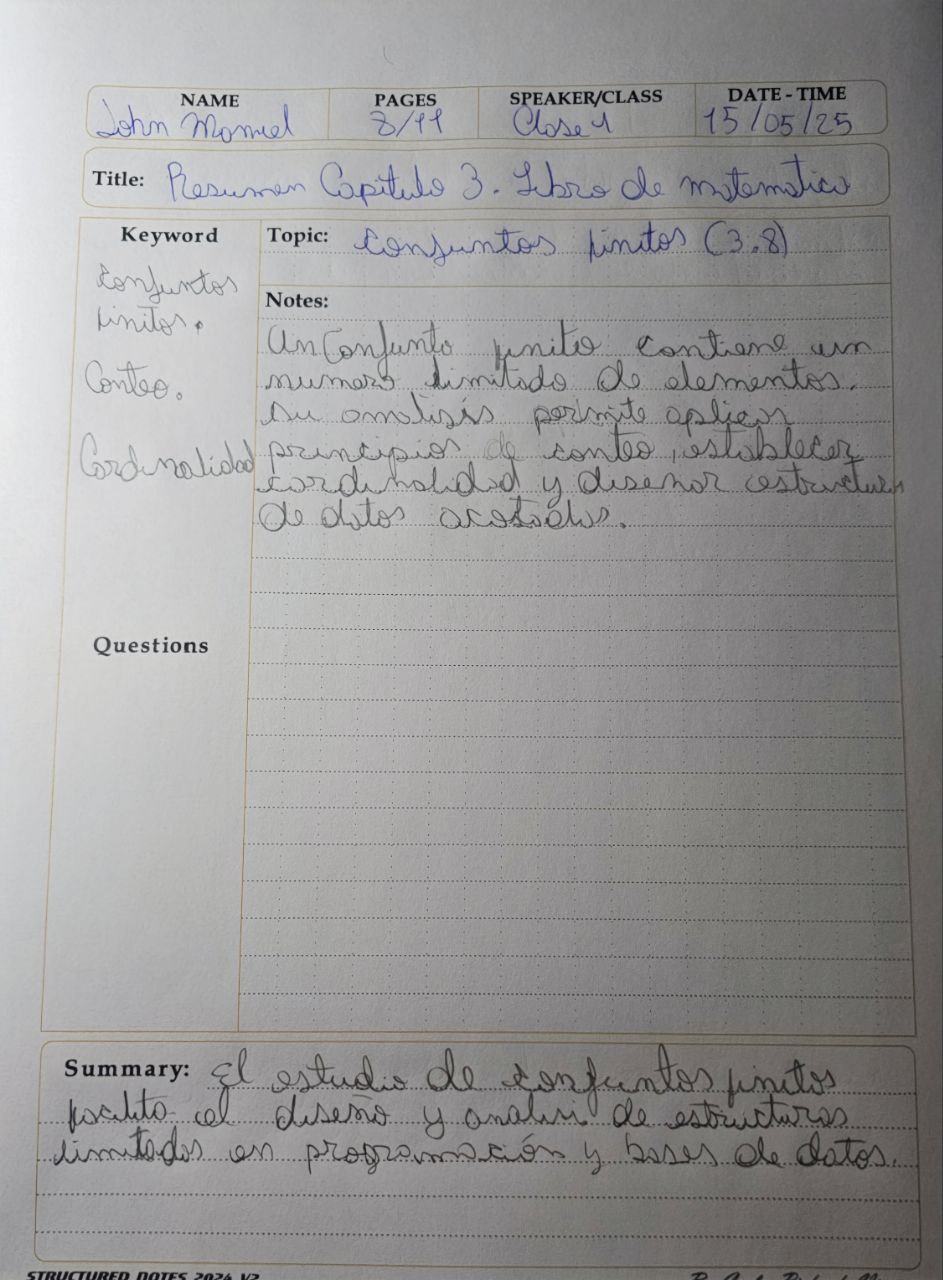 NAME PAGES SPEAKER/CLASS DATE - TIME
John Manuel 8/11 Clase 1 15/05/25
Title: Resumen Capitulo 3. Libro de matematica
Keyword
Topic: Conjuntos finitos (3.8)
Conjuntos
finitos.
Conteo.
Cardinalidad
Notes:
Un Conjunto finito contiene un
numero limitado de elementos.
Su analisis permite aplicar
principios de conteo, establecer
cardinalidad y diseñar estructuras
de datos acotadas.
Questions
Summary: El estudio de conjuntos finitos
facilita el diseño y analisi de estructuras
limitadas en programación y bases de datos.
STRUCTURED NOTES 2024 V2